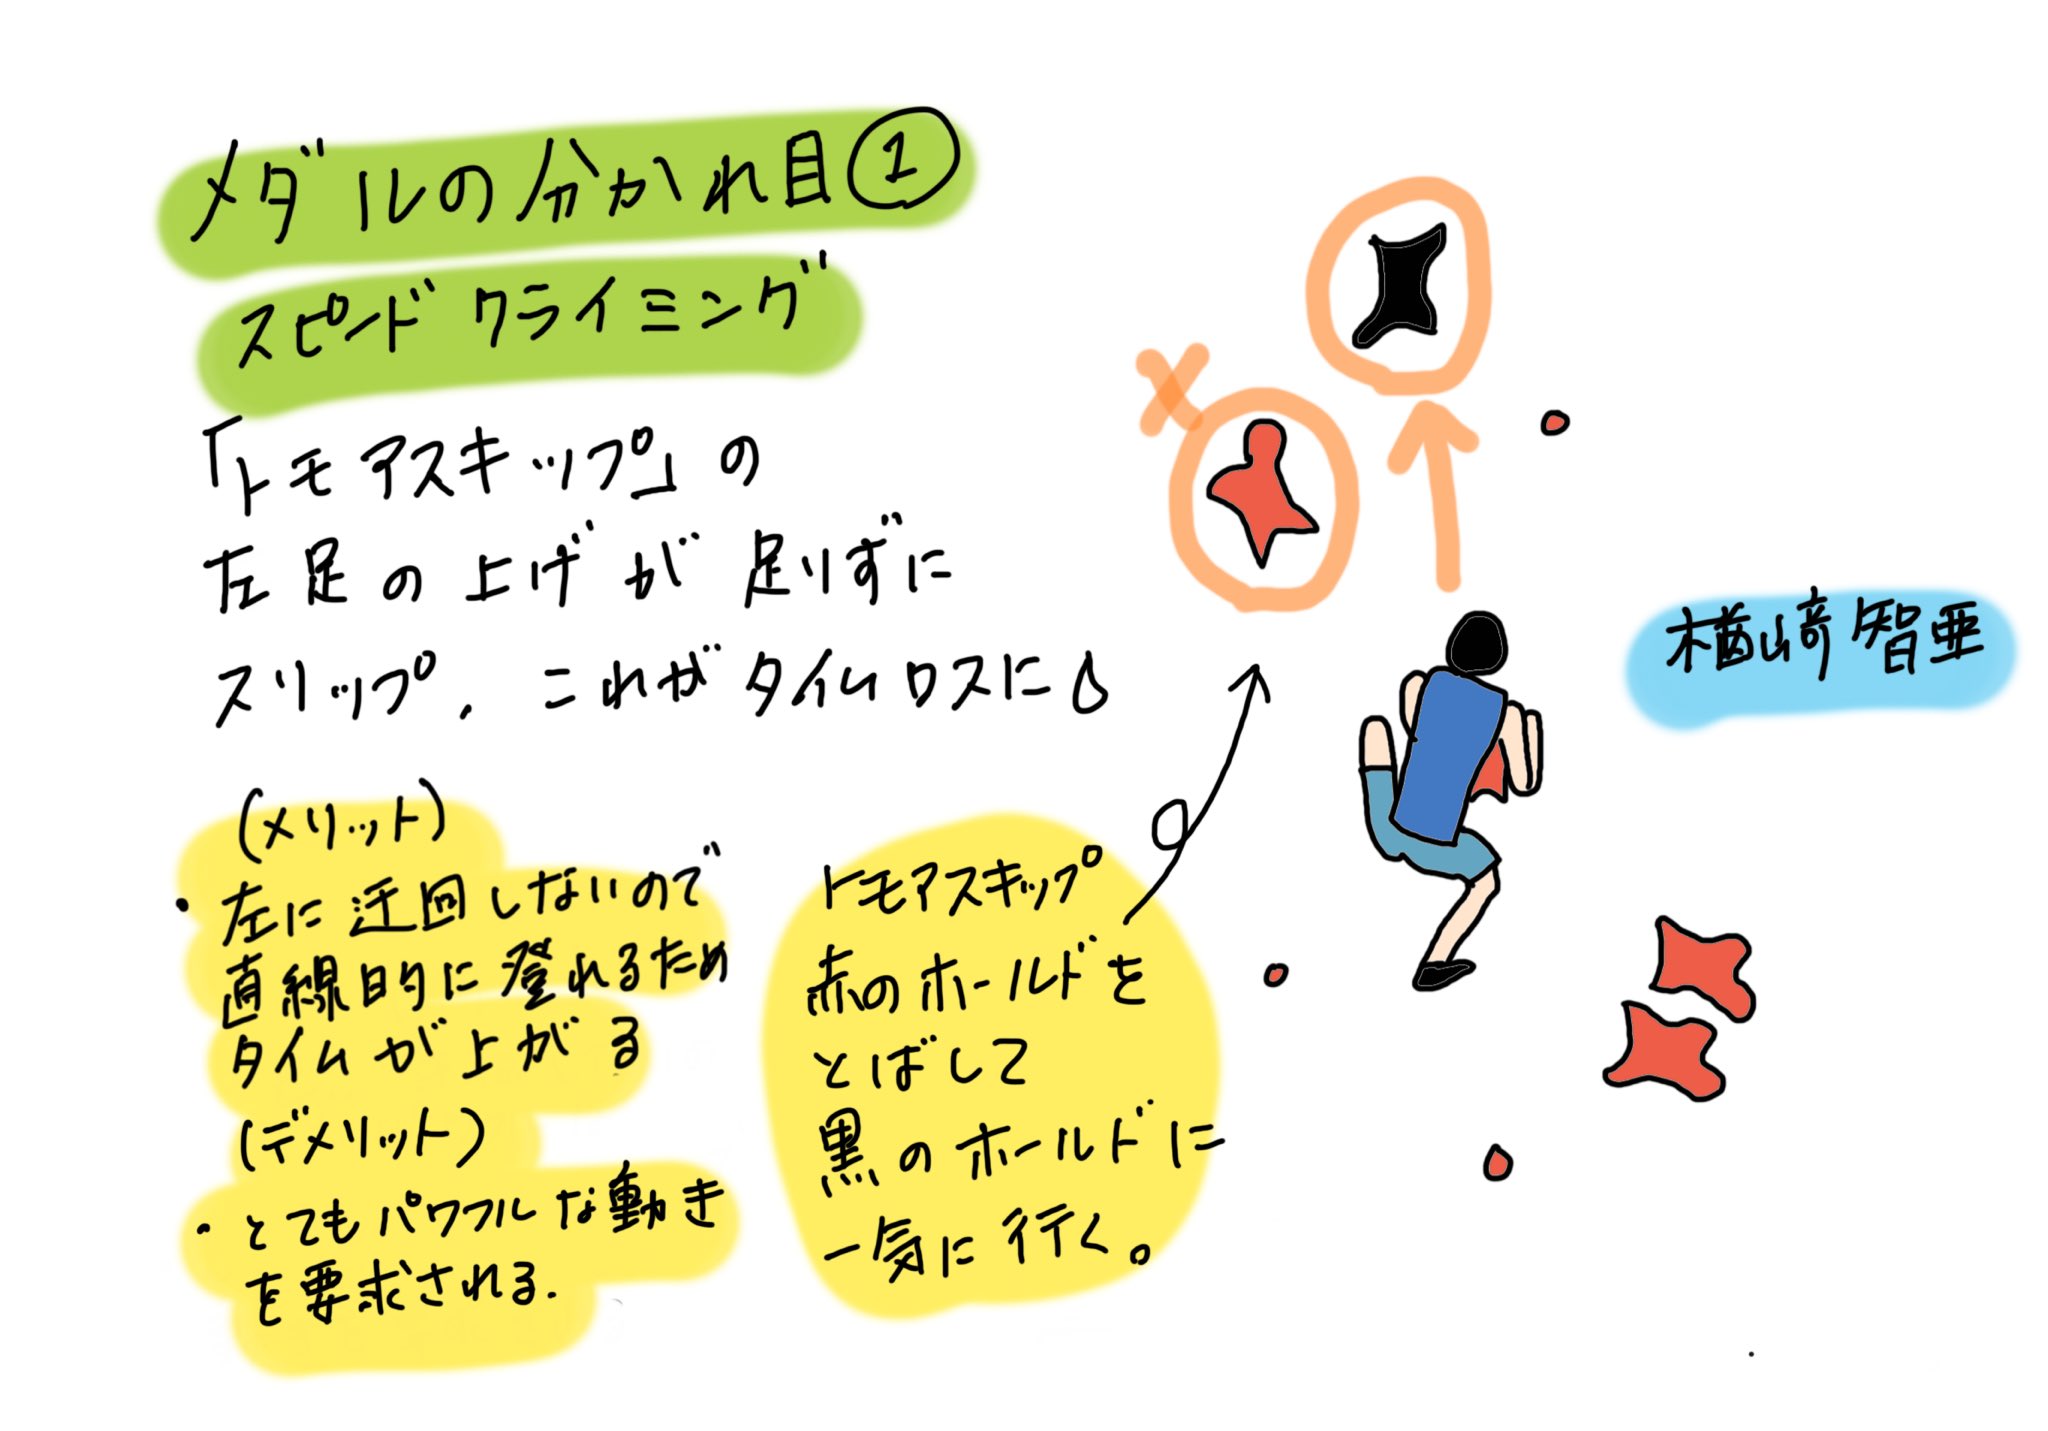 メダルの分かれ目①
スピードクライミング
「トモアスキップ」の
左足の上げが足りずに
スリップ、これがタイムロスに
(メリット)
・左に迂回しないので
直線的に登れるため
タイムが上がる
(デメリット)
・とてもパワフルな動き
を要求される.
トモアスキップ
赤のホールドを
とばして
黒のホールドに
一気に行く。
楢﨑智亜